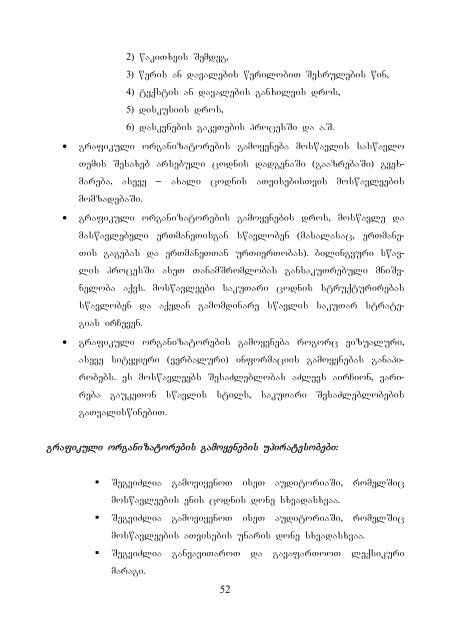 2) წაკითხვის შემდეგ,
3) წერის ან დავალების წერილობით შესრულების წინ,
4) ტექსტის ან დავალების განხილვის დროს,
5) დისკუსიის დროს,
6) დასკვნების გაკეთების პროცესში და ა.შ.
• გრაფიკული ორგანიზატორების გამოყენება მოსწავლის სასწავლო
თემის შესახებ არსებული ცოდნის დადგენაში (გააზრებაში) გვეხ-
მარება, ასევე – ახალი ცოდნის ათვისებისთვის მოსწავლეების
მომზადებაში.
• გრაფიკული ორგანიზატორების გამოყენების დროს, მოსწავლე და
მასწავლებელი ერთმანეთისგან სწავლობენ (მასალასაც, ერთმანე-
თის გაგებას და ერთმანეთთან ურთიერთობას). ბილინგვური სწავ-
ლის პროცესში ასეთ თანამშრომლობას განსაკუთრებული მნიშვ-
ნელობა აქვს. მოსწავლეები საკუთარი ცოდნის სტრუქტურირებას
სწავლობენ და აქედან გამომდინარე სწავლის საკუთარ სტრატე-
გიას ირჩევენ.
• გრაფიკული ორგანიზატორების გამოყენება როგორც ვიზუალური,
ასევე სიტყვიერი (ვერბალური) ინფორმაციის გამოყენებას განაპი-
რობებს. ეს მოსწავლეებს შესაძლებლობას აძლევს აირჩიონ, ვარი-
რება გაუკეთონ სწავლის სტილს, საკუთარი შესაძლებლობების
გათვალისწინებით.
გრაფიკული ორგანიზატორების გამოყენების უპირატესობები:
▪ შეგვიძლია გამოვიყენოთ ისეთ აუდიტორიაში, რომელშიც
მოსწავლეების ენის ცოდნის დონე სხვადასხვაა.
▪ შეგვიძლია გამოვიყენოთ ისეთ აუდიტორიაში, რომელშიც
მოსწავლეების ათვისების უნარის დონე სხვადასხვაა.
▪ შეგვიძლია განვავითაროთ და გავაფართოოთ ლექსიკური
მარაგი.
52